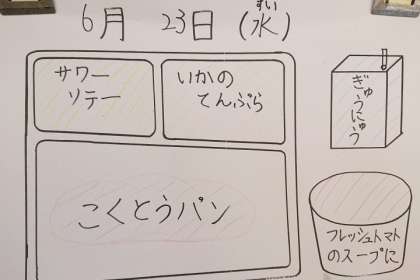 6月 23日 (水)
すい
サワー
ソテー
いかの
てんぷら
ぎゅうにゅう
こくとうパン
フレッシュトマト
のスープに